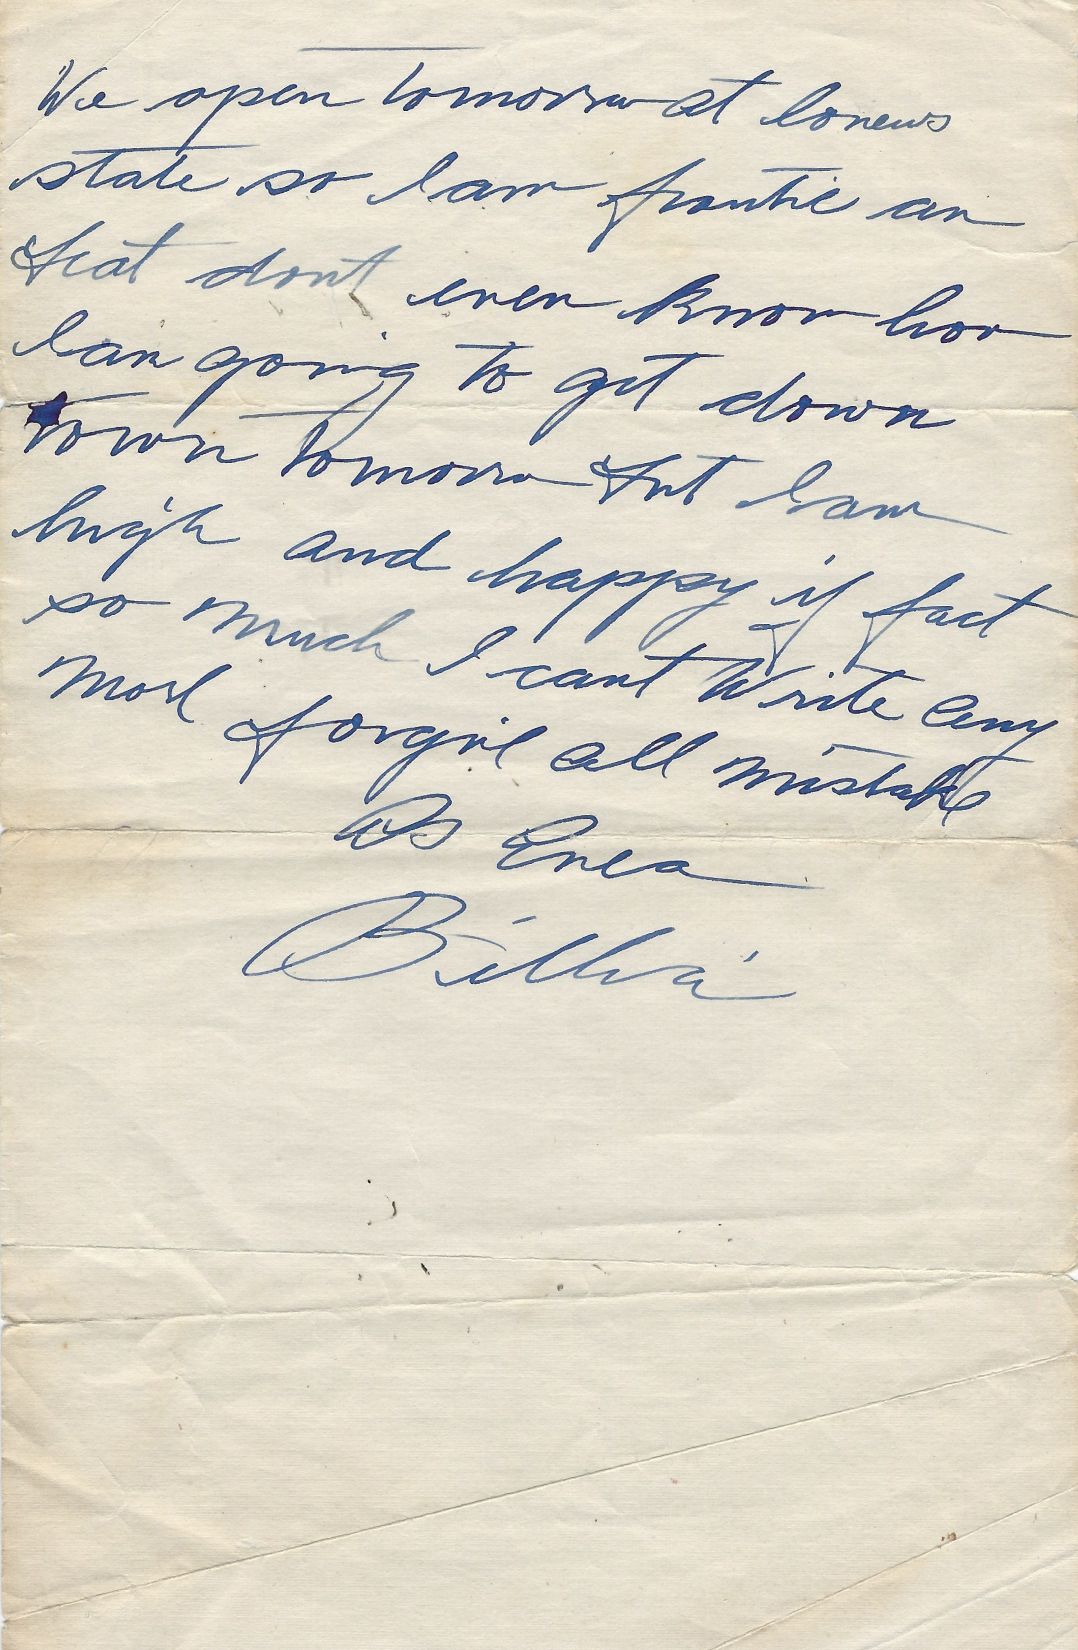 We open tomorrow at Lonews
state so I am frantic an
Beat dont even know how
I am going to get down
town tomorrow But I am
high and happy if fact
so much I cant Write any
more forgive all mistake
As Ever
Billie